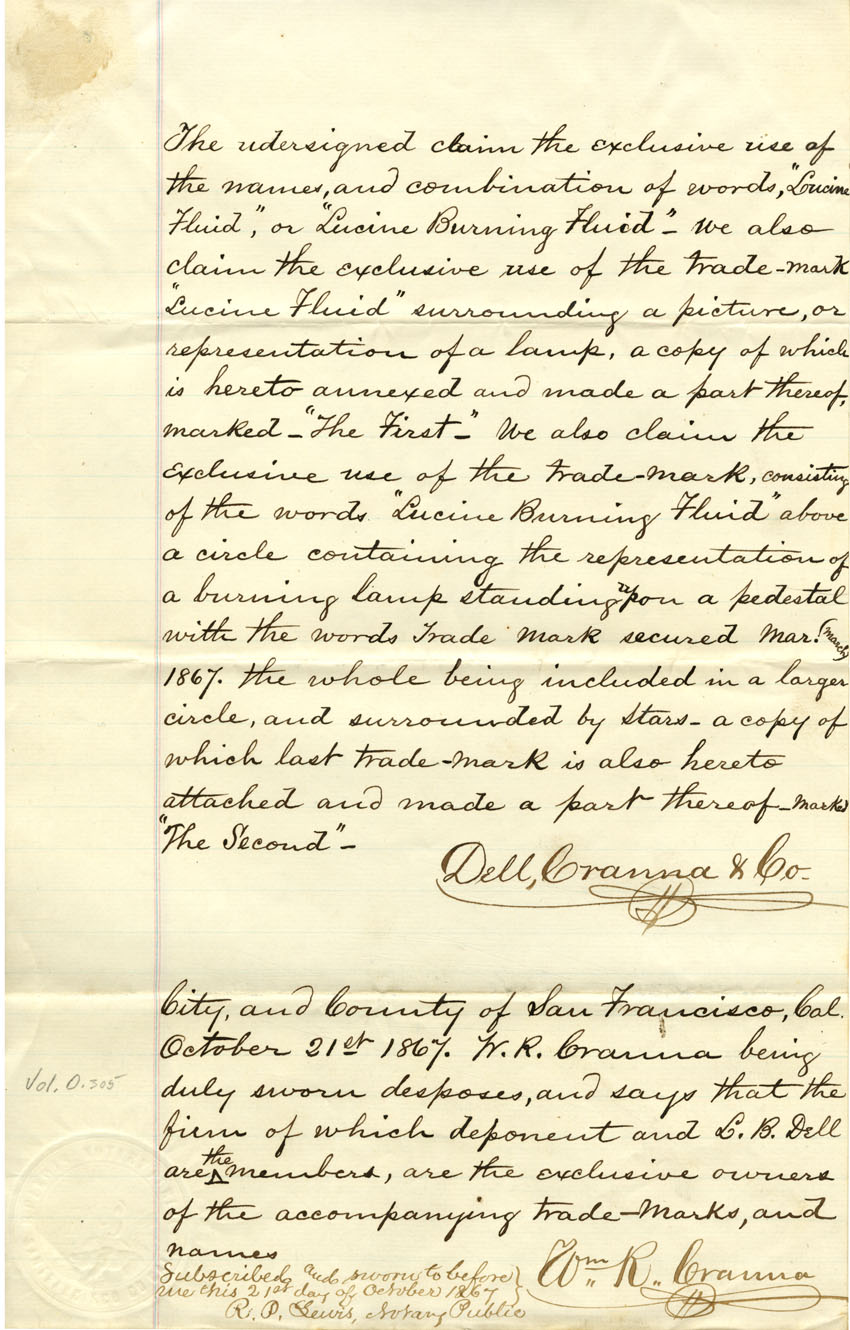 The udersigned claim the exclusive use of
the names, and combination of words, "Lucine
Fluid", or "Lucine Burning Fluid" - We also
claim the exclusive use of the trade-mark
"Lucine Fluid" surrounding a picture, or
representation of a lamp, a copy of which
is hereto annexed and made a part thereof,
marked - "The First -" We also claim the
exclusive use of the trade-mark, consisting
of the words "Lucine Burning Fluid" above
a circle containing the representation of
a burning lamp standing upon a pedestal
with the words Trade Mark secured Mar. (March)
1867. the whole being included in a larger
circle, and surrounded by stars - a copy of
which last trade-mark is also hereto
attached and made a part thereof - marked
"The Second" -
Dell, Cranna & Co.
City, and County of San Francisco, Cal.
October 21st 1867. W. R. Cranna being
duly sworn desposes, and says that the
firm of which deponent and L. B. Dell
are the members, are the exclusive owners
of the accompanying trade-marks, and
names
Vol. O. 305
Subscribed, and sworn to before
me this 21st day of October 1867
R. P. Lewis, Notary Public
Wm. R. Cranna